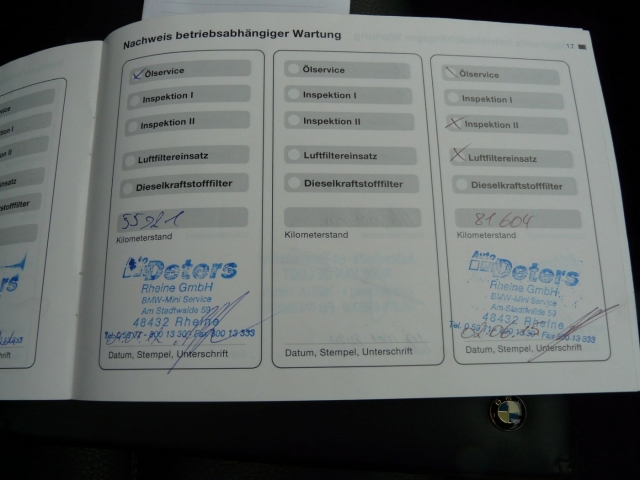 Nachweis betriebsabhängiger Wartung
17
Ölservice
Inspektion I
Inspektion II
Luftfiltereinsatz
Dieselkraftstofffilter
Kilometerstand
Auto Deters
Rheine GmbH
BMW-Mini Service
Am Stadtwalde 59
48432 Rheine
Datum, Stempel, Unterschrift
Ölservice
Inspektion I
Inspektion II
Luftfiltereinsatz
Dieselkraftstofffilter
Kilometerstand
Datum, Stempel, Unterschrift
Ölservice
Inspektion I
Inspektion II
Luftfiltereinsatz
Dieselkraftstofffilter
81604
Kilometerstand
Auto Deters
Rheine GmbH
BMW-Mini Service
Am Stadtwalde 59
48432 Rheine
Datum, Stempel, Unterschrift